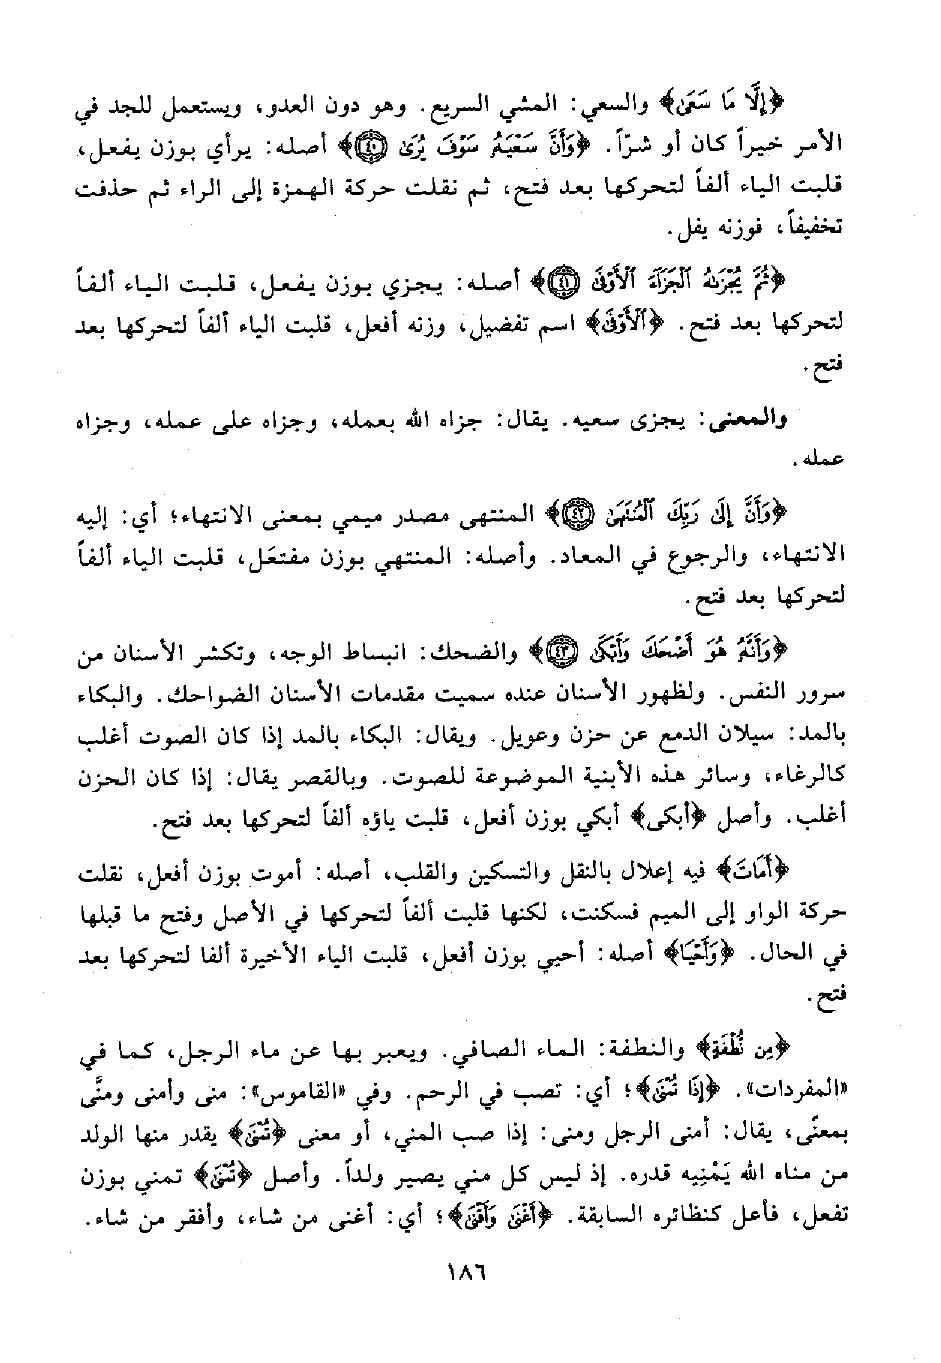 ﴿إِلَّا مَا سَعَىٰ﴾ والسعي: المشي السريع. وهو دون العدو، ويستعمل للجد في
الأمر خيراً كان أو شرّاً. ﴿وَأَنَّ سَعْيَهُ سَوْفَ يُرَىٰ ٤٠﴾ أصله: يرأي بوزن يفعل،
قلبت الياء ألفاً لتحركها بعد فتح، ثم نقلت حركة الهمزة إلى الراء ثم حذفت
تخفيفاً، فوزنه يفل.
﴿ثُمَّ يُجْزَاهُ الْجَزَاءَ الْأَوْفَىٰ ٤١﴾ أصله: يجزي بوزن يفعل، قلبت الياء ألفاً
لتحركها بعد فتح. ﴿الْأَوْفَىٰ﴾ اسم تفضيل، وزنه أفعل، قلبت الياء ألفاً لتحركها بعد
فتح.
والمعنى: يجزى سعيه. يقال: جزاه الله بعمله، وجزاه على عمله، وجزاه
عمله.
﴿وَأَنَّ إِلَىٰ رَبِّكَ الْمُنتَهَىٰ ٤٢﴾ المنتهى مصدر ميمي بمعنى الانتهاء؛ أي: إليه
الانتهاء، والرجوع في المعاد. وأصله: المنتهي بوزن مفتعَل، قلبت الياء ألفاً
لتحركها بعد فتح.
﴿وَأَنَّهُ هُوَ أَضْحَكَ وَأَبْكَىٰ ٤٣﴾ والضحك: انبساط الوجه، وتكشر الأسنان من
سرور النفس. ولظهور الأسنان عنده سميت مقدمات الأسنان الضواحك. والبكاء
بالمد: سيلان الدمع عن حزن وعويل. ويقال: البكاء بالمد إذا كان الصوت أغلب
كالرغاء، وسائر هذه الأبنية الموضوعة للصوت. وبالقصر يقال: إذا كان الحزن
أغلب. وأصل ﴿أبكى﴾ أبكي بوزن أفعل، قلبت ياؤه ألفاً لتحركها بعد فتح.
﴿أَمَاتَ﴾ فيه إعلال بالنقل والتسكين والقلب، أصله: أموت بوزن أفعل، نقلت
حركة الواو إلى الميم فسكنت، لكنها قلبت ألفاً لتحركها في الأصل وفتح ما قبلها
في الحال. ﴿وَأَحْيَا﴾ أصله: أحيي بوزن أفعل، قلبت الياء الأخيرة ألفا لتحركها بعد
فتح.
﴿مِن نُّطْفَةٍ﴾ والنطفة: الماء الصافي. ويعبر بها عن ماء الرجل، كما في
«المفردات». ﴿إِذَا تُمْنَىٰ﴾؛ أي: تصب في الرحم. وفي «القاموس»: منى وأمنى ومنَّى
بمعنًى، يقال: أمنى الرجل ومنى: إذا صب المني، أو معنى ﴿تُمْنَىٰ﴾ يقدر منها الولد
من مناه الله يَمْنِيه قدره. إذ ليس كل مني يصير ولداً. وأصل ﴿تُمْنَىٰ﴾ تمني بوزن
تفعل، فأعل كنظائره السابقة. ﴿أَغْنَىٰ وَأَقْنَىٰ﴾؛ أي: أغنى من شاء، وأفقر من شاء.
١٨٦